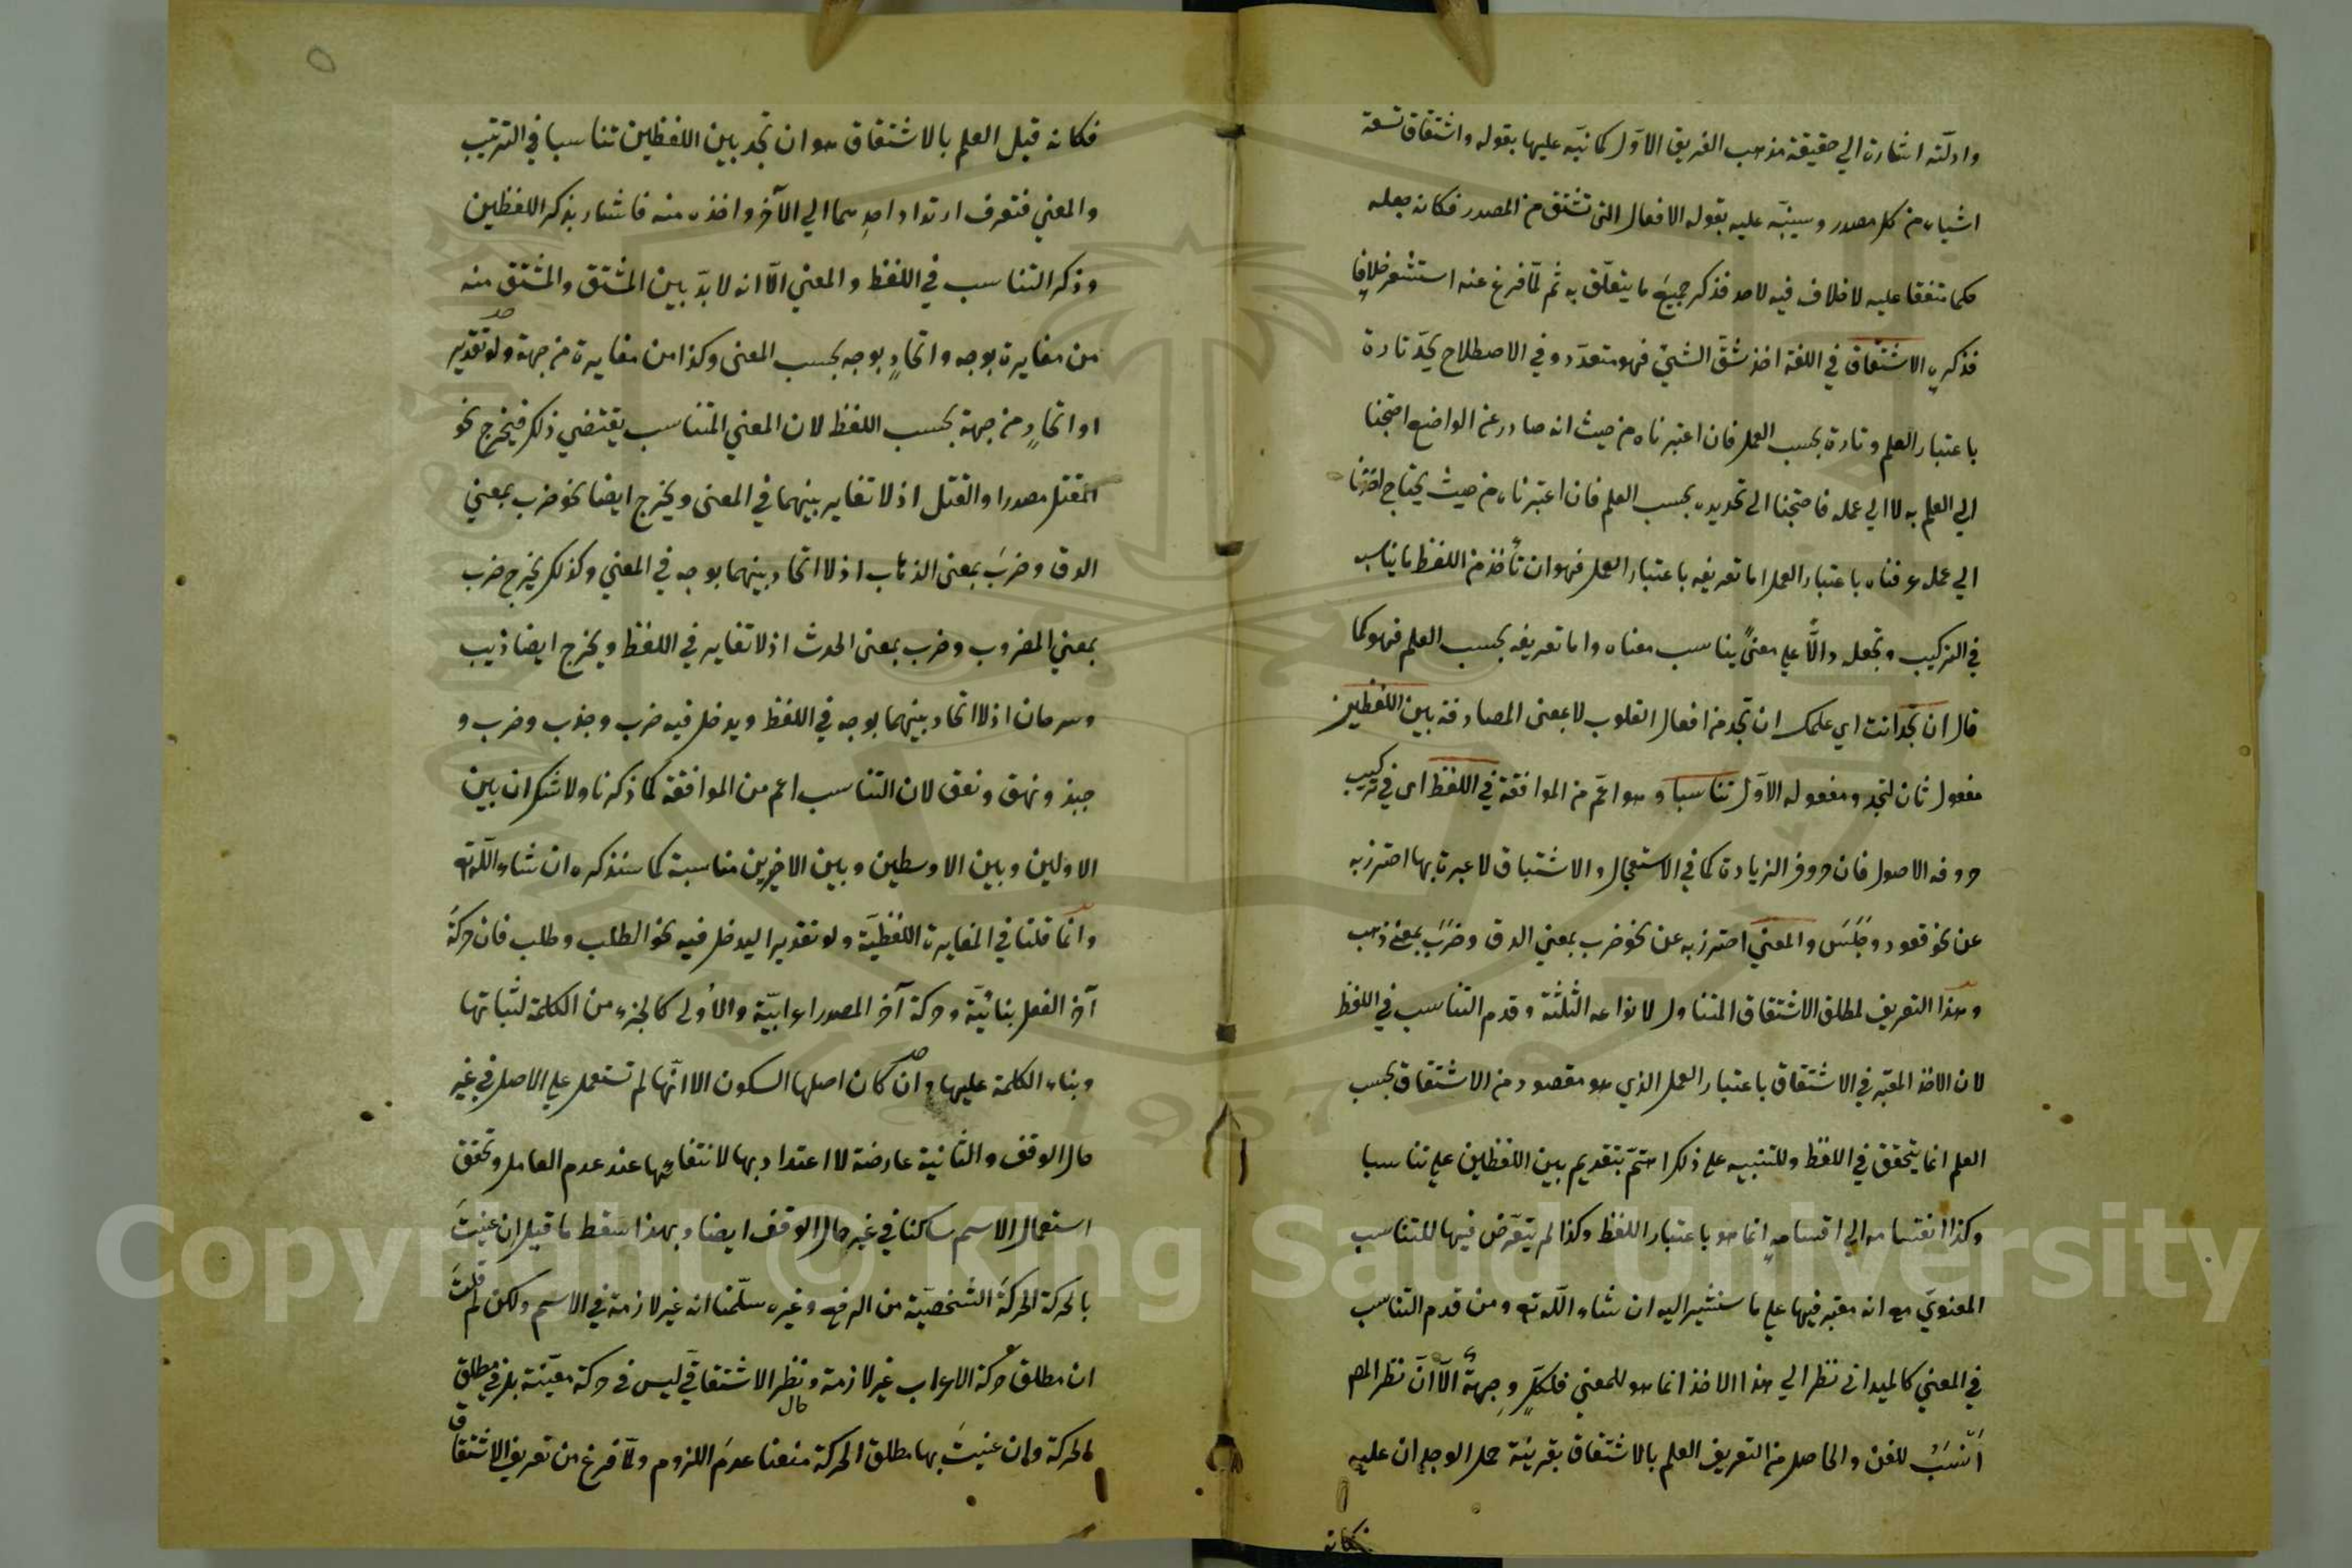 وادلّته اشارة الي حقيقة مذهب الفريق الاوّل كما نبّه عليها بقوله واشتقاق تسعة
اشياء من كل مصدر وسينبّه عليه بقوله الافعال التى تشتق من المصدر فكانه جعله
حكما متفقا عليه لا خلاف فيه لاحد فذكر جميعَ ما يتعلّق به ثم لمّا فرغ عنه استشعر خلافا
فذكره الاشتقاق في اللغة اخذ شقّ الشيئ فهو متعدّد وفي الاصطلاح يحدّ تارة
باعتبار العلم وتارة بحسب العمل فان اعتبرناه من حيث انه صادر عن الواضع احتجنا
الي العلم به لا الي عمله فاحتجنا الى تحديده بحسب العلم فان اعتبرناه من حيث يحتاج احدنا
الي عمله عرفناه باعتبار العمل اما تعريفه باعتبار العمل فهو ان تأخذ من اللفظ ما يناسبه
في التركيب وتجعله دالّاً على معنىً يناسب معناه واما تعريفه بحسب العلم فهو كما
قال ان تجد انت اي علمك ان تجد من افعال القلوب لا بمعنى المصادفة بين اللفظين
مفعول ثان لتجد ومفعوله الاوّل تناسبا وهو اعمّ من الموافقة في اللفظ اى في تركيب
حروفه الاصول فان حروف الزيادة كما في الاستعجال والاشتباق لا عبرة بها احترز به
عن نحو قعود وجَلَسَ والمعني احترز به عن نحو ضرب بمعني الدق وضرَبَ بمعنى ذهب
وهذا التعريف لمطلق الاشتقاق المتناول لانواعه الثلثة وقدم التناسب في اللفظ
لان الاخذ المعتبر في الاشتقاق باعتبار العمل الذي هو مقصود من الاشتقاق بحسب
العلم انما يتحقق في اللفظ وللتنبيه على ذلك اهتمّ بتقديم بين اللفظين علي تناسبا
وكذا انقسامه الي اقسامهٍ انما هو باعتبار اللفظ وكذا لم يتعرّض فيها للتناسب
المعنويّ مع انه معتبر فيها علي ما سنشير اليه ان شاء اللّه تع ومن قدم التناسب
في المعني كالميدانى نظر الي هذا الاخذ انما هو للمعني فلكلٍّ وِجهةٌ الّا انّ نظر المص
اَنْسَبُ للفن والحاصل من التعريف العلم بالاشتقاق بقرينة حمل الوجدان عليه
فكانه
فكانه قيل العلم بالاشتقاق هو ان تجد بين اللفظين تناسبا في الترتيب
والمعني فتعرف ارتداد احدِهما الي الآخر واخذه منه فاشار بذكر اللفظين
وذكر التناسب في اللفظ والمعني الّا انه لا بدّ بين المشتق والمشتق منه
من مغايرة بوجه واتحادٍ بوجه بحسب المعنى وكذا من مغايرة من جهة ولو تقدير
او اتحادٍ من جهة بحسب اللفظ لان المعني المتناسب يقتضي ذلك فيخرج نحو
المقتل مصدرا والقتل اذ لا تغاير بينهما في المعنى ويخرج ايضا نحو ضرب بمعني
الدق وضرَبَ بمعنى الذهاب اذ لا اتحاد بينهما بوجه في المعني وكذلك يخرج ضرب
بمعني المضروب وضرب بمعنى الحدث اذ لا تغاير في اللفظ ويخرج ايضا ذيب
وسرحان اذ لا اتحاد بينهما بوجه في اللفظ ويدخل فيه ضرب وجذب وضرب و
جبذ ونهق ونعق لان التناسب اعم من الموافقة كما ذكرنا ولا شك ان بين
الاولين وبين الاوسطين وبين الاخيرين مناسبة كما سنذكره ان شاء اللّه تع
وانما قلنا في المغايرة اللفظيّة ولو تقديرا ليدخل فيه نحو الطلب وطلب فان حركةَ
آخر الفعل بنائيّة وحركة آخر المصدر اعرابيّة والأولى كالجزء من الكلمة لثباتها
وبناء الكلمة عليها وان كان اصلها السكون الا انّها لم تستعمل علي الاصل في غير
حال الوقف والثانية عارضة لا اعتداد بها لانتفائها عند عدم العامل وتحقق
استعمال الاسم ساكنا في غير حال الوقف ايضا وبهذا سقط ما قيل ان عنيتَ
بالحركة الحركةَ الشخصيّة من الرفع وغيره سلّمنا انه غير لازمة في الاسم ولكن لم قلت
ان مطلق حركة الاعراب غير لازمة ونظر الاشتقاقيّ ليس في حركة معيّنة بل في مطلق
حال
الحركة وان عنيتَ بها مطلق الحركة منعنا عدمَ اللزوم ولمّا فرغ من تعريف الاشتقاق